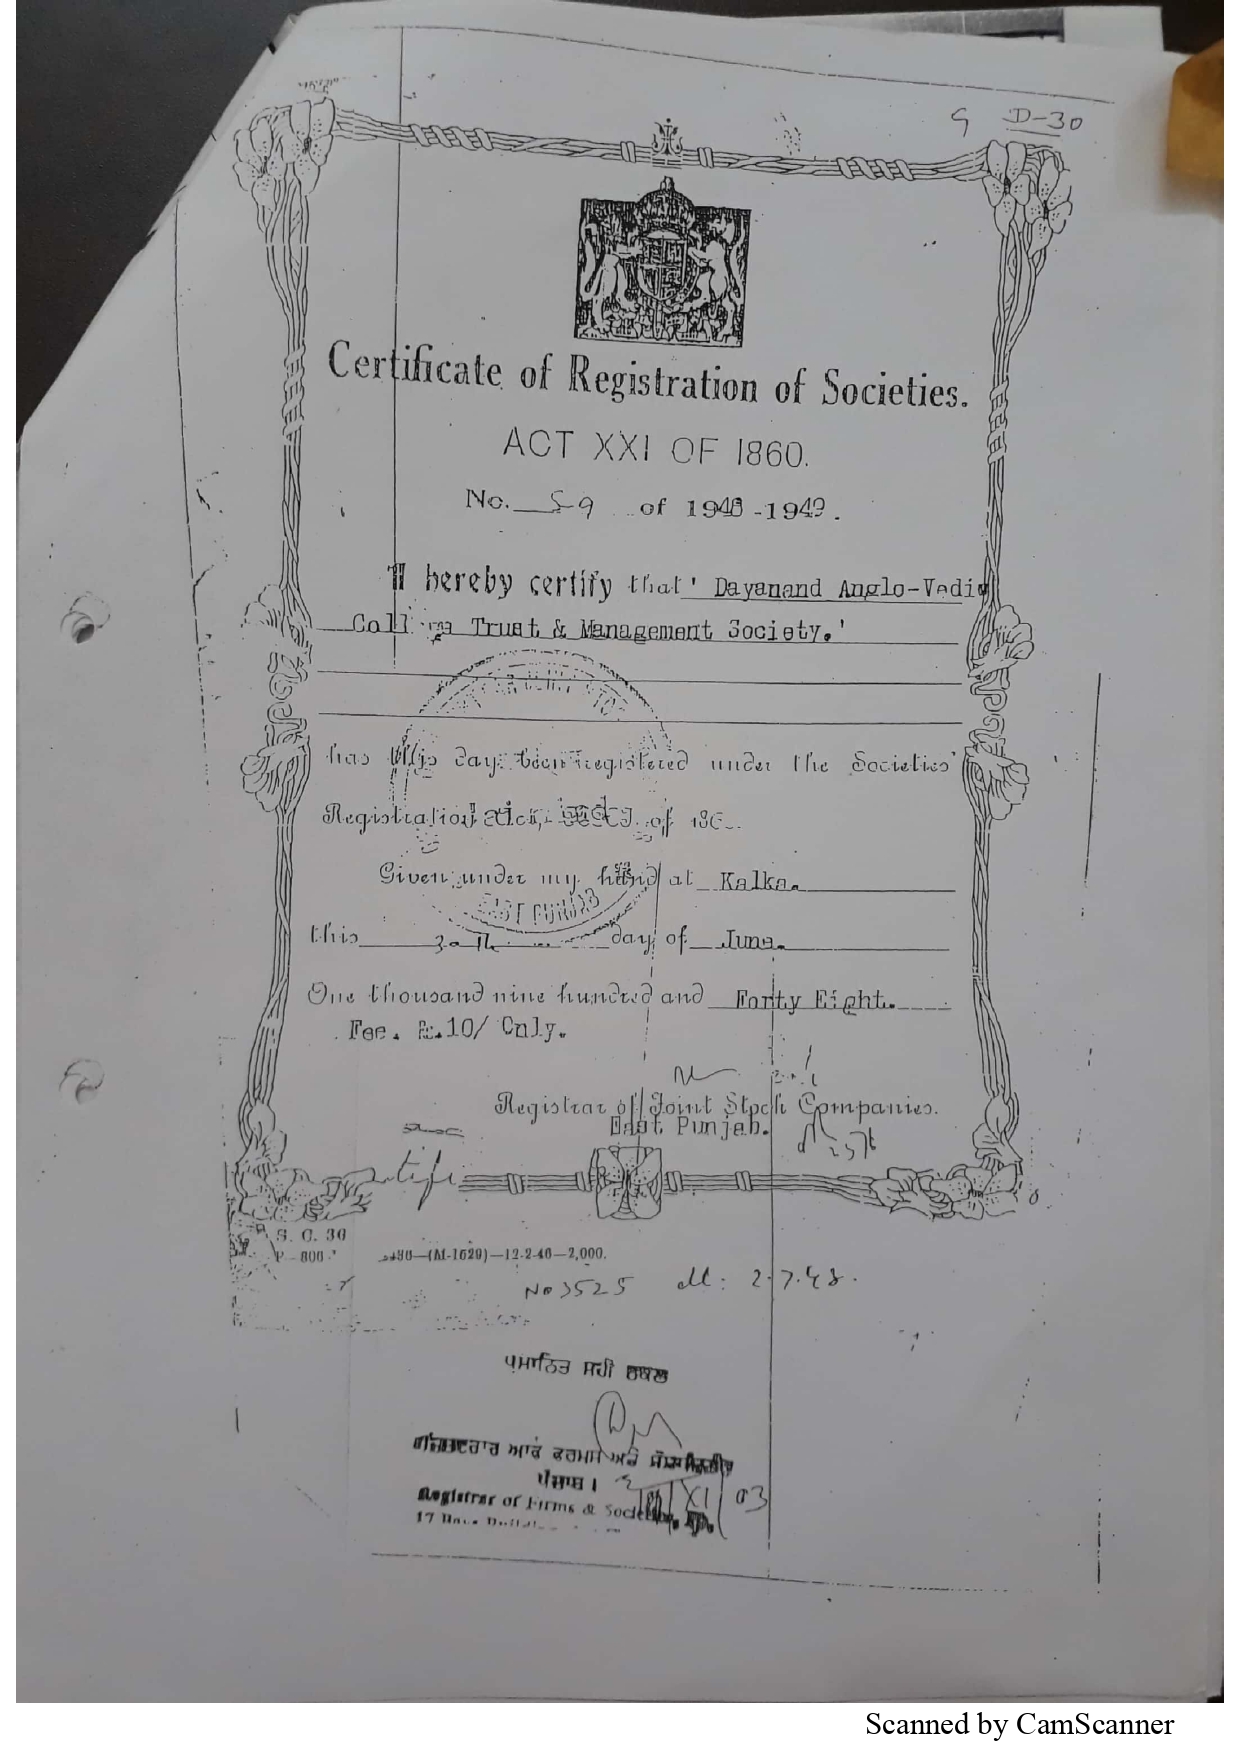 D-30
Certificate of Registration of Societies.
ACT XXI OF 1860.
No. 59 of 1948-1949.
I hereby certify that ' Dayanand Anglo-Vedic
College Trust & Management Society.'
has this day been registered under the Societies'
Registration Act, XXI of 186
Given under my hand at Kalka.
this 30th day of June.
One thousand nine hundred and Forty Eight.
Fee. Rs.10/ Only.
Registrar of Joint Stock Companies.
East Punjab.
EAST PUNJAB
S. C. 36
—(M-1629)—12-2-46—2,000.
No 3525 dt: 2.7.48.
ਪ੍ਰਮਾਨਿਤ ਸਹੀ ਨਕਲ
ਰਜਿਸਟਰਾਰ ਆਫ ਫਰਮਸ ਅਤੇ
ਪੰਜਾਬ।
Registrar of Firms & Societies, Pb.
XI/03
17
Scanned by CamScanner